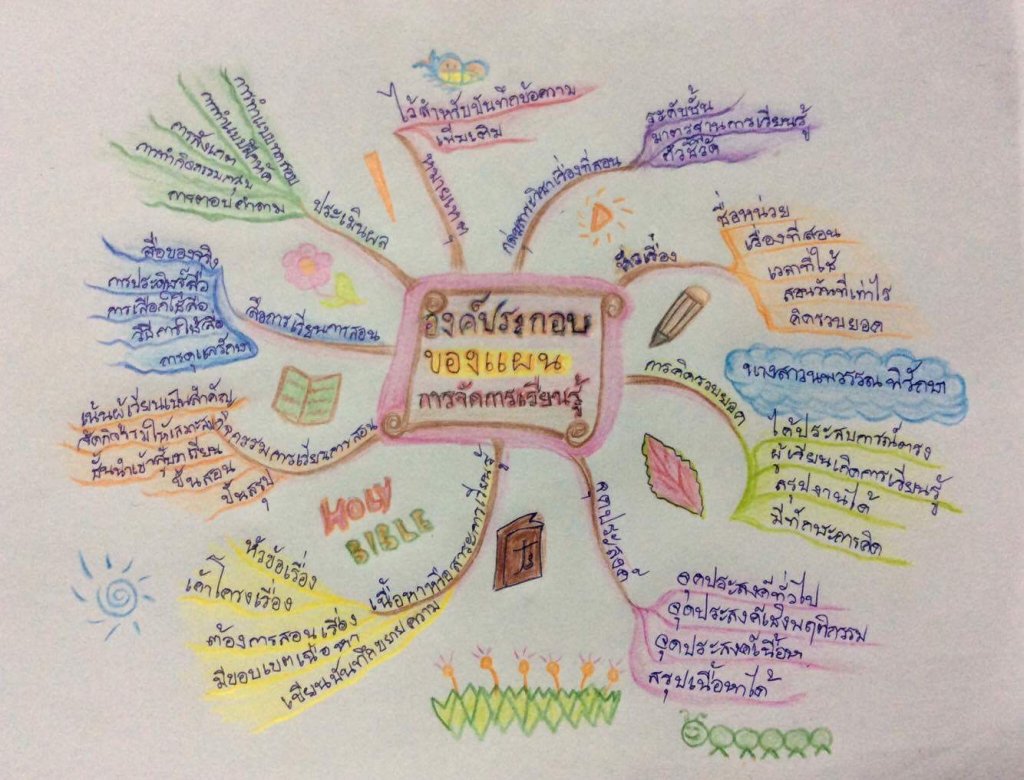 องค์ประกอบ
ของแผน
การจัดการเรียนรู้
หมายเหตุ
ไว้สำหรับบันทึกข้อความ
เพิ่มเติม
กลุ่มสาระวิชาเรื่องที่สอน
ระดับชั้น
มาตรฐานการเรียนรู้
ตัวชี้วัด
หัวเรื่อง
ชื่อหน่วย
เรื่องที่สอน
เวลาที่ใช้
สอนวันที่เท่าไร
คิดรวบยอด
การคิดรวบยอด
ได้ประสบการณ์ตรง
ผู้เรียนเกิดการเรียนรู้
สรุปงานได้
มีทักษะการคิด
นางสาวนพวรรณ
จุดประสงค์
จุดประสงค์ทั่วไป
จุดประสงค์เชิงพฤติกรรม
จุดประสงค์เนื้อหา
สรุปเนื้อหาได้
เนื้อหาหรือสาระการเรียนรู้
หัวข้อเรื่อง
เค้าโครงเรื่อง
ต้องการสอนเรื่อง
มีขอบเขตเนื้อหา
เขียนบันทึกขยายความ
HOLY
BIBLE
กิจกรรมการเรียนการสอน
เน้นผู้เรียนเป็นสำคัญ
ขั้นนำเข้าสู่บทเรียน
ขั้นสอน
ขั้นสรุป
สื่อการเรียนการสอน
สื่อของจริง
การประดิษฐ์สื่อ
การเลือกใช้สื่อ
วิธีการใช้สื่อ
การดูแลรักษา
ประเมินผล
การทำแบบทดสอบ
การทำแบบฝึกหัด
การสังเกต
การทำกิจกรรมกลุ่ม
การตอบคำถาม